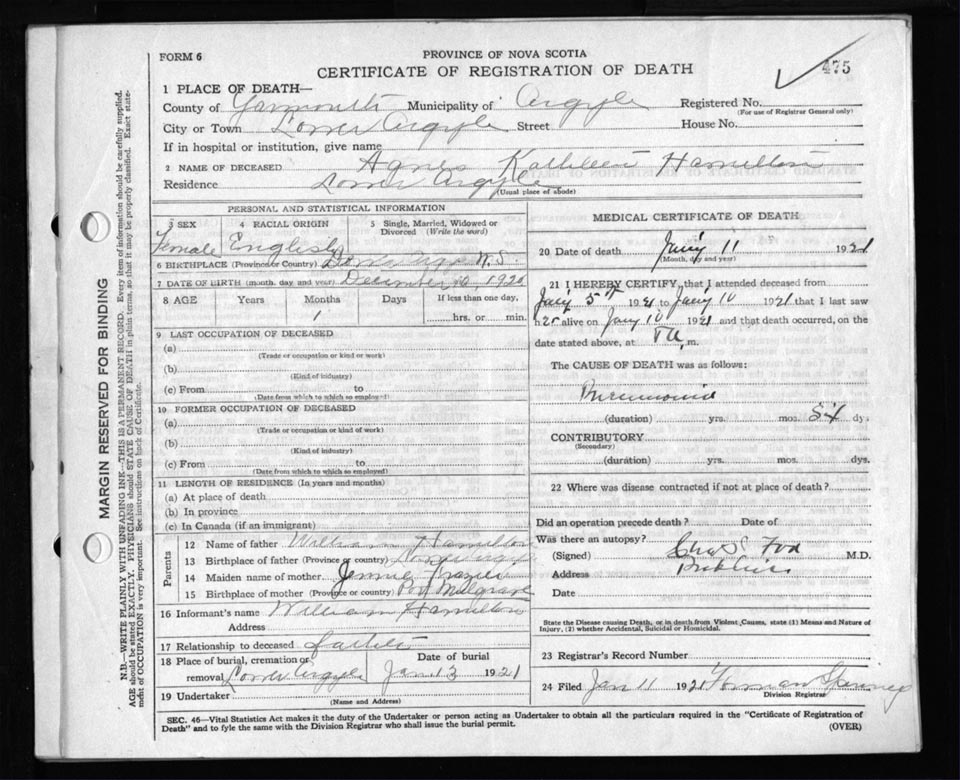 FORM 6
PROVINCE OF NOVA SCOTIA
CERTIFICATE OF REGISTRATION OF DEATH
475
1 PLACE OF DEATH—
County of Yarmouth Municipality of Argyle Registered No.
(For use of Registrar General only)
City or Town Lower Argyle Street House No.
If in hospital or institution, give name
2 NAME OF DECEASED Agnes Kathleen Hamilton
Residence Lower Argyle
(Usual place of abode)
PERSONAL AND STATISTICAL INFORMATION
3 SEX 4 RACIAL ORIGIN 5 Single, Married, Widowed or Divorced (Write the word)
Female English
6 BIRTHPLACE (Province or Country) Lower Argyle N.S.
7 DATE OF BIRTH (month, day, and year) December 10, 1920
8 AGE Years Months Days If less than one day,
1 hrs. or min.
9 LAST OCCUPATION OF DECEASED
(a)
(Trade or occupation or kind or work)
(b)
(Kind of industry)
(c) From to
(Date from which to which so employed)
10 FORMER OCCUPATION OF DECEASED
(a)
(Trade or occupation or kind of work)
(b)
(Kind of industry)
(c) From to
(Date from which to which so employed)
11 LENGTH OF RESIDENCE (In years and months)
(a) At place of death
(b) In province
(c) In Canada (if an immigrant)
Parents
12 Name of father William Hamilton
13 Birthplace of father (Province or country) Lower Argyle
14 Maiden name of mother Jennie Frazier
15 Birthplace of mother (Province or country) Port Mulgrave
16 Informant's name William Hamilton
Address
17 Relationship to deceased Father
18 Place of burial, cremation or removal Lower Argyle Date of burial Jan 13 1921
19 Undertaker
(Name and Address)
MEDICAL CERTIFICATE OF DEATH
20 Date of death Jany 11 1921
(Month, day and year)
21 I HEREBY CERTIFY, that I attended deceased from
Jany 5th 1921 to Jany 10 1921 that I last saw
her alive on Jany 10 1921 and that death occurred, on the
date stated above, at m.
The CAUSE OF DEATH was as follows:
Pneumonia
(duration) yrs. mos. dys.
CONTRIBUTORY
(Secondary)
(duration) yrs. mos. dys.
22 Where was disease contracted if not at place of death?
Did an operation precede death? Date of
Was there an autopsy?
(Signed) Chas S Fox M.D.
Address Pubnico
Date
State the Disease causing Death, or in death from Violent Causes, state (1) Means and Nature of Injury, (2) whether Accidental, Suicidal or Homicidal.
23 Registrar's Record Number
24 Filed Jan 11 1921 Forman Spinney
Division Registrar
SEC. 46—Vital Statistics Act makes it the duty of the Undertaker or person acting as Undertaker to obtain all the particulars required in the "Certificate of Registration of
Death" and to fyle the same with the Division Registrar who shall issue the burial permit.
(OVER)
MARGIN RESERVED FOR BINDING
N.B.—WRITE PLAINLY WITH UNFADING INK—THIS IS A PERMANENT RECORD. Every item of information should be carefully supplied.
AGE should be stated EXACTLY. PHYSICIANS should STATE CAUSE OF DEATH in plain terms, so that it may be properly classified. Exact statement
of OCCUPATION is very important. See instructions on back of Certificate.